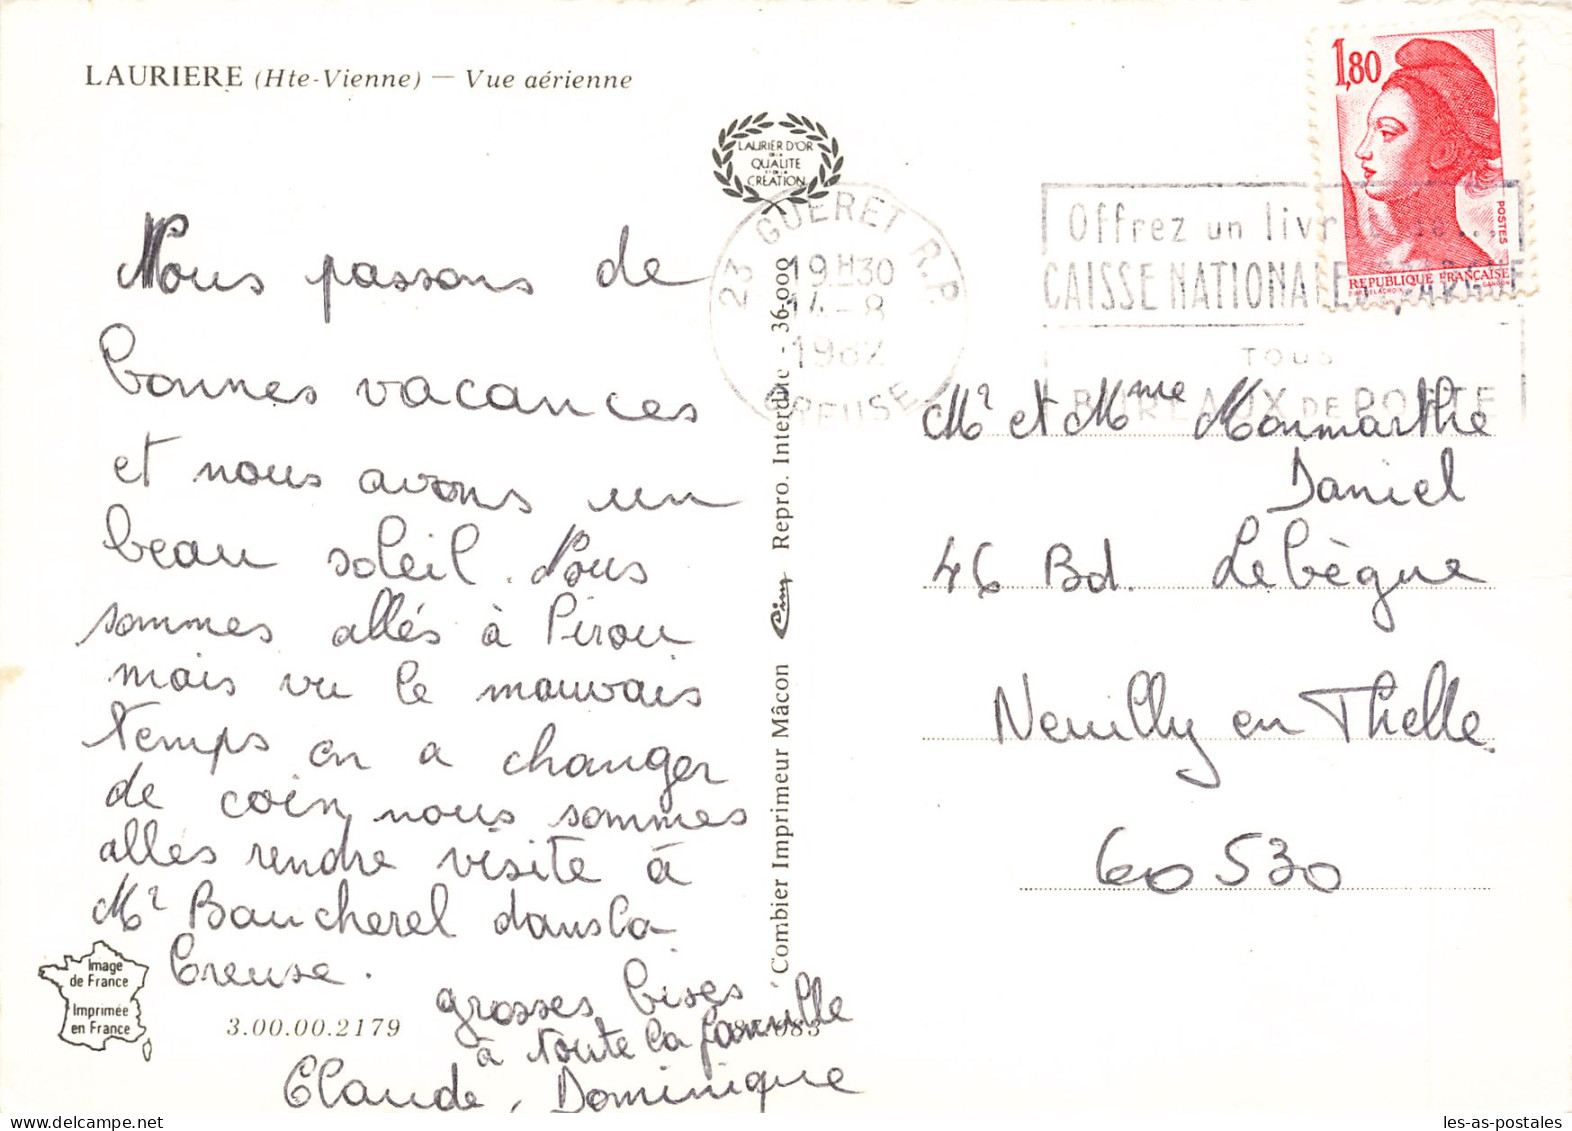 LAURIERE (Hte-Vienne) — Vue aérienne
LAURIER D'OR
DE LA
QUALITE
ET DE LA
CREATION
Nous passons de
bonnes vacances
et nous avons un
beau soleil. Nous
sommes allés à Pirou
mais vu le mauvais
temps on a changer
de coin, nous sommes
allés rendre visite à
Mr Baucherel dans la
Creuse.
grosses bises
à toute la famille
Claude, Dominique
Image
de France
Imprimée
en France
3.00.00.2179
Combier Imprimeur Mâcon Cim Repro. Interdite - 36.000
23 GUERET R.P.
19H30
14-8
1982
CREUSE
Offrez un livret
CAISSE NATIONALE D'EPARGNE
TOUS
BUREAUX DE POSTE
1,80
POSTES
REPUBLIQUE FRANÇAISE
D'AP. DELACROIX GANDON
Mr et Mme Monmarthe
Daniel
46 Bd. Lebègue
Neuilly en Thelle
60530
les-as-postales